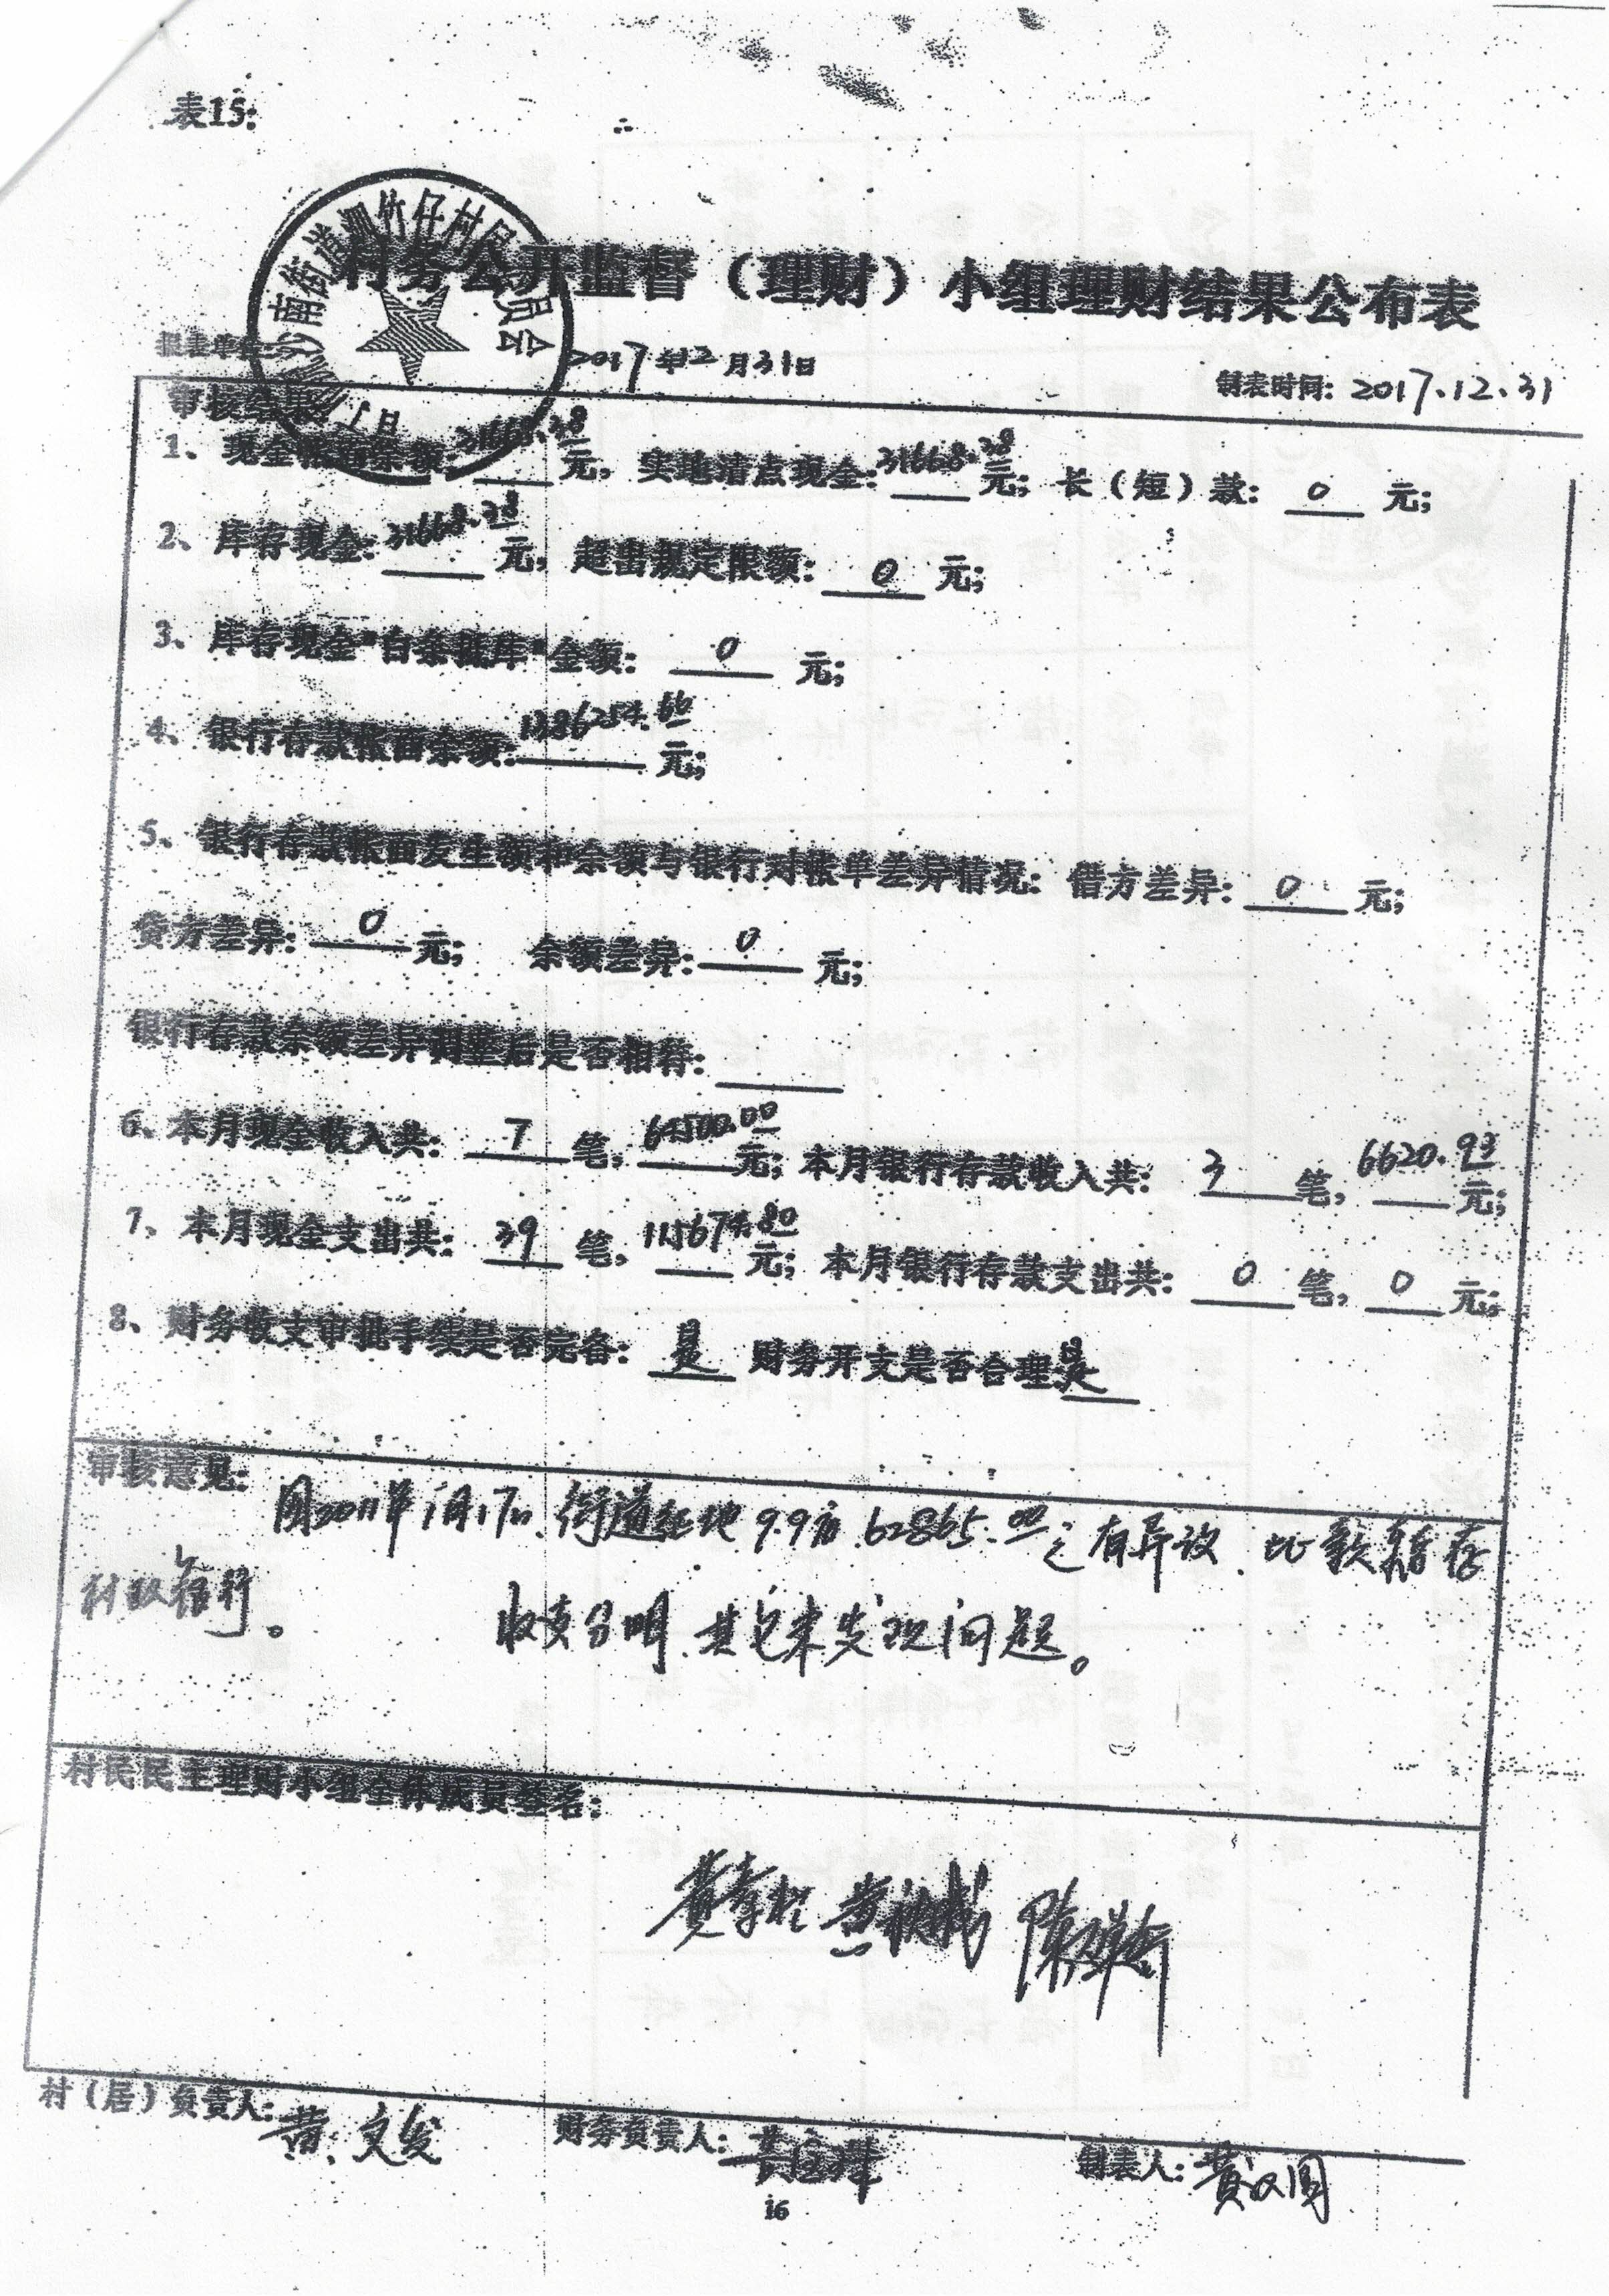 表15:
村务公开监督（理财）小组理财结果公布表
报表单位: 2017年12月31日 制表时间: 2017.12.31
审核结果
1、现金帐面余额: 31668.38元, 实地清点现金: 31668.38元; 长（短）款: 0 元;
2、库存现金: 31668.38元, 超出规定限额: 0 元;
3、库存现金"白条抵库"金额: 0 元;
4、银行存款帐面余额: 1386254.60元;
5、银行存款帐面发生额和余额与银行对帐单差异情况: 借方差异: 0 元;
贷方差异: 0 元; 余额差异: 0 元;
银行存款余额差异调整后是否相符:
6、本月现金收入共: 7 笔, 元; 本月银行存款收入共: 3 笔, 6620.93元;
7、本月现金支出共: 39 笔, 115674.80元; 本月银行存款支出共: 0 笔, 0 元;
8、财务收支审批手续是否完备: 是 财务开支是否合理是
审核意见: 因2011年1月17日.街道征地9.9亩.62865.00元有异议.此款暂存
村账银行。 收支分明.其它未发现问题。
村民民主理财小组全体成员签名:
村（居）负责人: 黄文发 财务负责人: 制表人: 黄汉圆
16